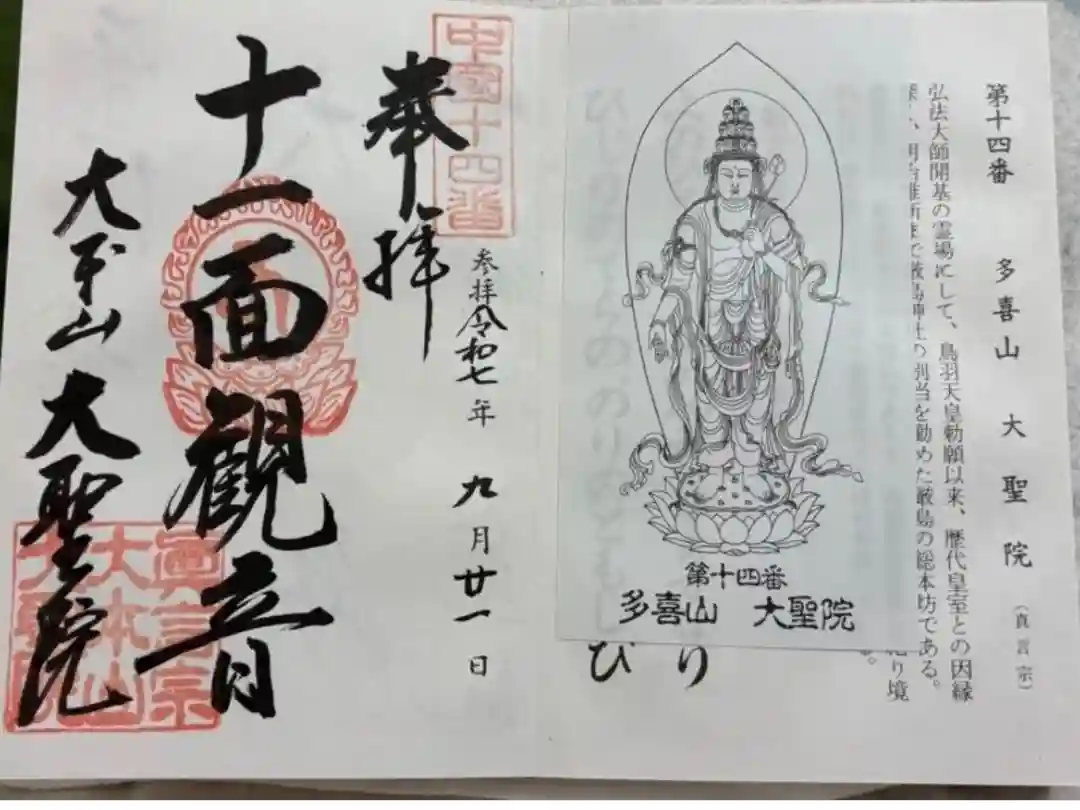 第十四番　多喜山　大聖院（真言宗）
弘法大師開基の霊場にして、鳥羽天皇勅願以来、歴代皇室との因縁
深く、明治維新まで厳島神社の別当を勤めた厳島の総本坊である。
り境
。
り
び
第十四番
多喜山　大聖院
中國十四番
奉拝
参拝令和七年九月廿一日
十一面観音
大本山　大聖院
眞言宗
大本山
大聖院